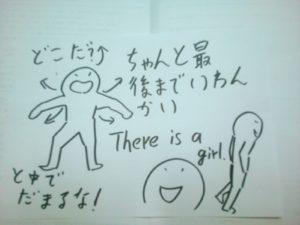 どこだろ↗
ちゃんと最
後までいわん
かい
There is a
girl.
とゆで
だまるな!